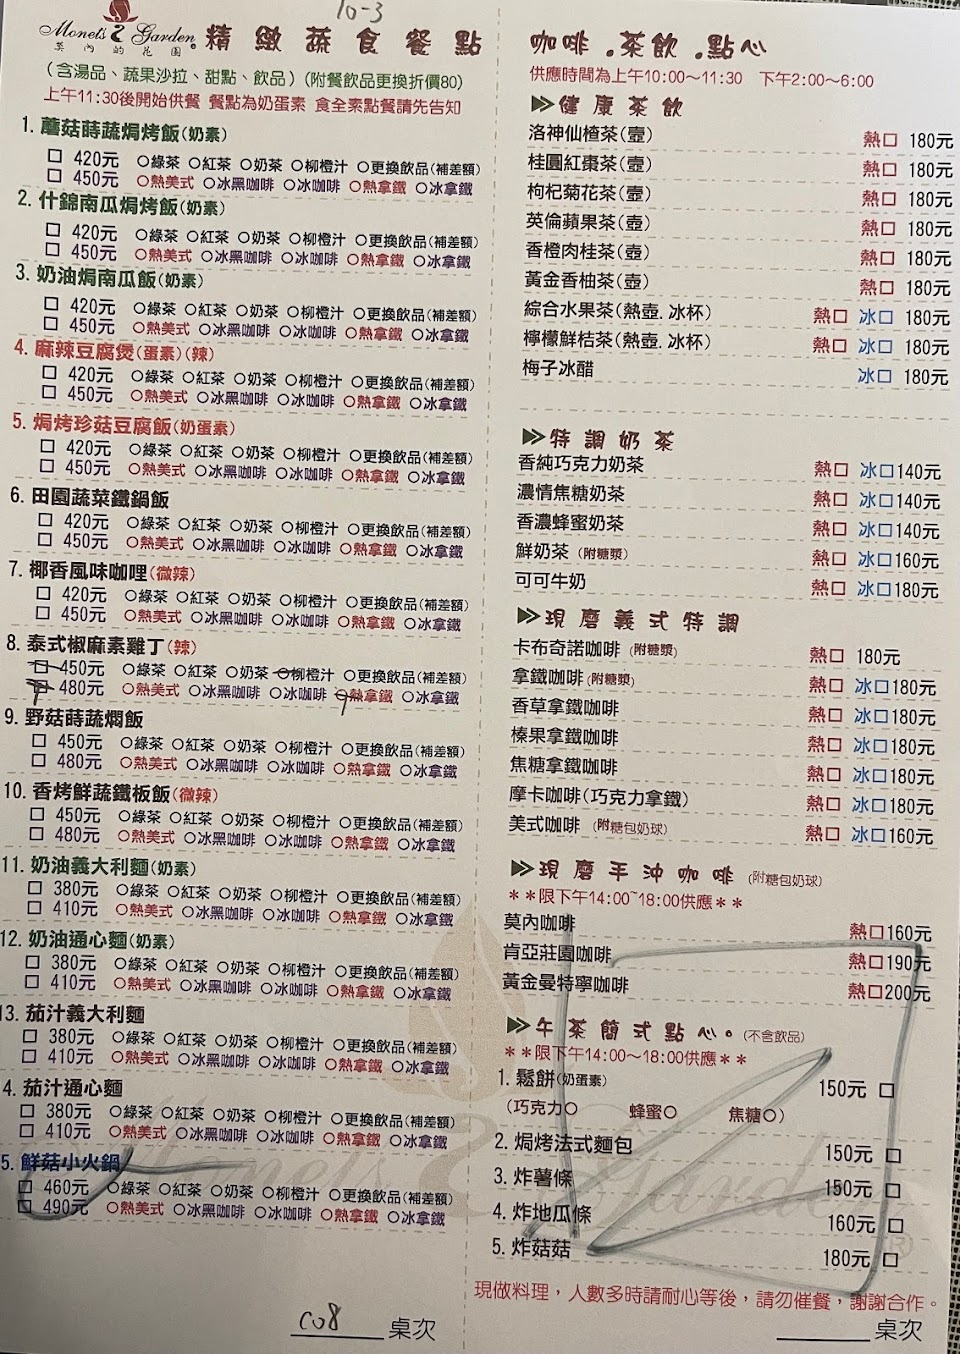 10-3
Monet's Garden
莫內的花園
精緻蔬食餐點
(含湯品、蔬果沙拉、甜點、飲品)(附餐飲品更換折價80)
上午11:30後開始供餐 餐點為奶蛋素 食全素點餐請先告知
1. 蘑菇蒔蔬焗烤飯(奶素)
□ 420元 ○綠茶 ○紅茶 ○奶茶 ○柳橙汁 ○更換飲品(補差額)
□ 450元 ○熱美式 ○冰黑咖啡 ○冰咖啡 ○熱拿鐵 ○冰拿鐵
2. 什錦南瓜焗烤飯(奶素)
□ 420元 ○綠茶 ○紅茶 ○奶茶 ○柳橙汁 ○更換飲品(補差額)
□ 450元 ○熱美式 ○冰黑咖啡 ○冰咖啡 ○熱拿鐵 ○冰拿鐵
3. 奶油焗南瓜飯(奶素)
□ 420元 ○綠茶 ○紅茶 ○奶茶 ○柳橙汁 ○更換飲品(補差額)
□ 450元 ○熱美式 ○冰黑咖啡 ○冰咖啡 ○熱拿鐵 ○冰拿鐵
4. 麻辣豆腐煲(蛋素)(辣)
□ 420元 ○綠茶 ○紅茶 ○奶茶 ○柳橙汁 ○更換飲品(補差額)
□ 450元 ○熱美式 ○冰黑咖啡 ○冰咖啡 ○熱拿鐵 ○冰拿鐵
5. 焗烤珍菇豆腐飯(奶蛋素)
□ 420元 ○綠茶 ○紅茶 ○奶茶 ○柳橙汁 ○更換飲品(補差額)
□ 450元 ○熱美式 ○冰黑咖啡 ○冰咖啡 ○熱拿鐵 ○冰拿鐵
6. 田園蔬菜鐵鍋飯
□ 420元 ○綠茶 ○紅茶 ○奶茶 ○柳橙汁 ○更換飲品(補差額)
□ 450元 ○熱美式 ○冰黑咖啡 ○冰咖啡 ○熱拿鐵 ○冰拿鐵
7. 椰香風味咖哩(微辣)
□ 420元 ○綠茶 ○紅茶 ○奶茶 ○柳橙汁 ○更換飲品(補差額)
□ 450元 ○熱美式 ○冰黑咖啡 ○冰咖啡 ○熱拿鐵 ○冰拿鐵
8. 泰式椒麻素雞丁(辣)
□ 450元 ○綠茶 ○紅茶 ○奶茶 ○柳橙汁 ○更換飲品(補差額)
□ 480元 ○熱美式 ○冰黑咖啡 ○冰咖啡 ○熱拿鐵 ○冰拿鐵
9. 野菇蒔蔬燜飯
□ 450元 ○綠茶 ○紅茶 ○奶茶 ○柳橙汁 ○更換飲品(補差額)
□ 480元 ○熱美式 ○冰黑咖啡 ○冰咖啡 ○熱拿鐵 ○冰拿鐵
10. 香烤鮮蔬鐵板飯(微辣)
□ 450元 ○綠茶 ○紅茶 ○奶茶 ○柳橙汁 ○更換飲品(補差額)
□ 480元 ○熱美式 ○冰黑咖啡 ○冰咖啡 ○熱拿鐵 ○冰拿鐵
11. 奶油義大利麵(奶素)
□ 380元 ○綠茶 ○紅茶 ○奶茶 ○柳橙汁 ○更換飲品(補差額)
□ 410元 ○熱美式 ○冰黑咖啡 ○冰咖啡 ○熱拿鐵 ○冰拿鐵
12. 奶油通心麵(奶素)
□ 380元 ○綠茶 ○紅茶 ○奶茶 ○柳橙汁 ○更換飲品(補差額)
□ 410元 ○熱美式 ○冰黑咖啡 ○冰咖啡 ○熱拿鐵 ○冰拿鐵
13. 茄汁義大利麵
□ 380元 ○綠茶 ○紅茶 ○奶茶 ○柳橙汁 ○更換飲品(補差額)
□ 410元 ○熱美式 ○冰黑咖啡 ○冰咖啡 ○熱拿鐵 ○冰拿鐵
4. 茄汁通心麵
□ 380元 ○綠茶 ○紅茶 ○奶茶 ○柳橙汁 ○更換飲品(補差額)
□ 410元 ○熱美式 ○冰黑咖啡 ○冰咖啡 ○熱拿鐵 ○冰拿鐵
5. 鮮菇小火鍋
□ 460元 ○綠茶 ○紅茶 ○奶茶 ○柳橙汁 ○更換飲品(補差額)
□ 490元 ○熱美式 ○冰黑咖啡 ○冰咖啡 ○熱拿鐵 ○冰拿鐵
C08 桌次
咖啡.茶飲.點心
供應時間為上午10:00~11:30 下午2:00~6:00
健康茶飲
洛神仙楂茶(壺) 熱□ 180元
桂圓紅棗茶(壺) 熱□ 180元
枸杞菊花茶(壺) 熱□ 180元
英倫蘋果茶(壺) 熱□ 180元
香橙肉桂茶(壺) 熱□ 180元
黃金香柚茶(壺) 熱□ 180元
綜合水果茶(熱壺.冰杯) 熱□ 冰□ 180元
檸檬鮮桔茶(熱壺.冰杯) 熱□ 冰□ 180元
梅子冰醋 冰□ 180元
特調奶茶
香純巧克力奶茶 熱□ 冰□140元
濃情焦糖奶茶 熱□ 冰□140元
香濃蜂蜜奶茶 熱□ 冰□140元
鮮奶茶(附糖漿) 熱□ 冰□160元
可可牛奶 熱□ 冰□180元
現磨義式特調
卡布奇諾咖啡(附糖漿) 熱□ 180元
拿鐵咖啡(附糖漿) 熱□ 冰□180元
香草拿鐵咖啡 熱□ 冰□180元
榛果拿鐵咖啡 熱□ 冰□180元
焦糖拿鐵咖啡 熱□ 冰□180元
摩卡咖啡(巧克力拿鐵) 熱□ 冰□180元
美式咖啡(附糖包奶球) 熱□ 冰□160元
現磨手沖咖啡(附糖包奶球)
**限下午14:00~18:00供應**
莫內咖啡 熱□160元
肯亞莊園咖啡 熱□190元
黃金曼特寧咖啡 熱□200元
午茶簡式點心。(不含飲品)
**限下午14:00~18:00供應**
1. 鬆餅(奶蛋素) 150元 □
(巧克力○ 蜂蜜○ 焦糖○)
2. 焗烤法式麵包 150元 □
3. 炸薯條 150元 □
4. 炸地瓜條 160元 □
5. 炸菇菇 180元 □
現做料理，人數多時請耐心等後，請勿催餐，謝謝合作。
桌次
Monet's Garden ®